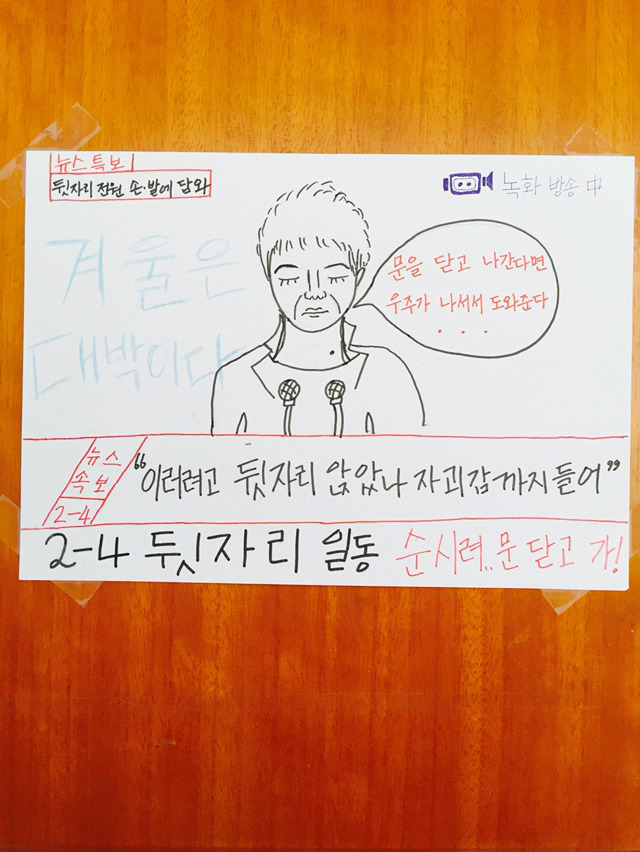 뉴스특보
뒷자리 전원 손·발에 담와
녹화 방송 中
겨울은
대박이다
문을 닫고 나간다면
우주가 나서서 도와준다
...
뉴스
속보
2-4
“이러려고 뒷자리 앉았나 자괴감까지 들어”
2-4 뒷자리 일동 순시려..문 닫고 가!